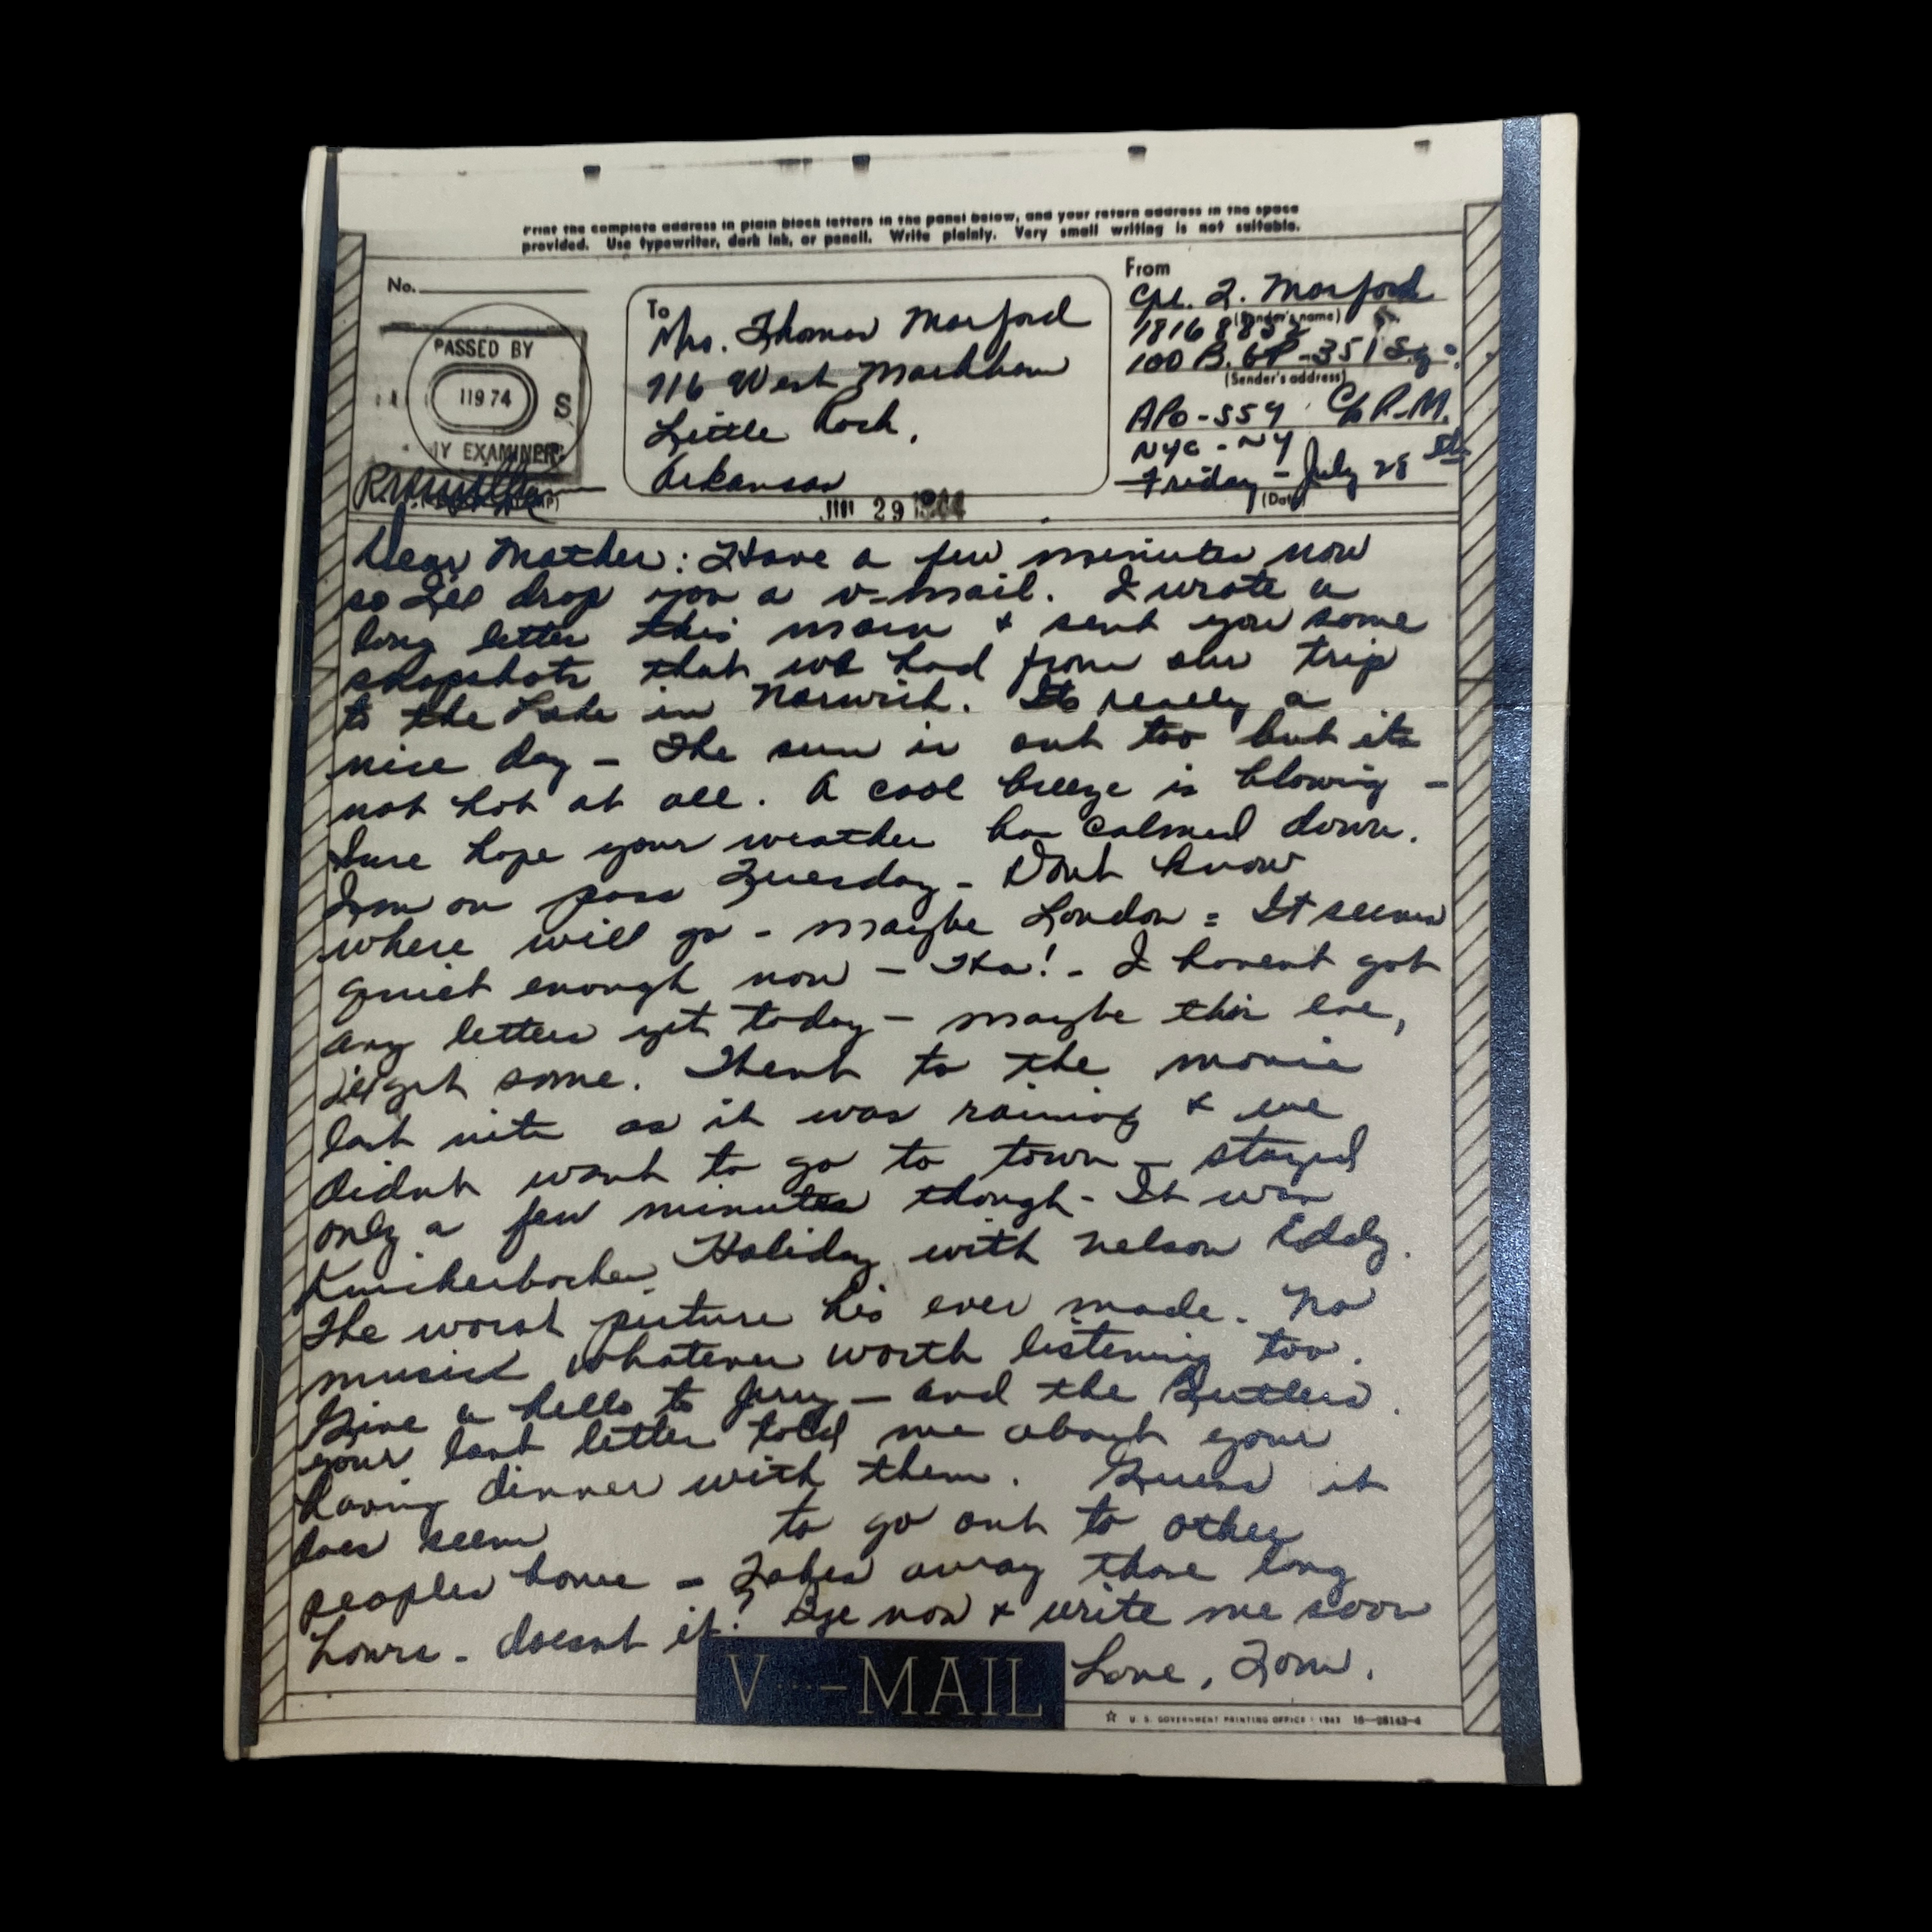 Print the complete address in plain block letters in the panel below, and your return address in the space
provided. Use typewriter, dark ink, or pencil. Write plainly. Very small writing is not suitable.
No.
PASSED BY
11974
S
Y EXAMINER
To
Mrs. Thomas Morford
716 West Markham
Little Rock,
Arkansas
From
Cpl. T. Morford
(Sender's name)
18168852
100 B. GP-351 Sq.
(Sender's address)
APO-559 C/o P.M.
NYC-NY
Friday - July 28 th
(Date)
29 1944
Dear Mother: Have a few minutes now
so I'll drop you a v-mail. I wrote a
long letter this morn & sent you some
snapshots that we had from our trip
to the Lake in Norwich. Its really a
nice day - The sun is out too but its
not hot at all. A cool breeze is blowing -
Sure hope your weather has calmed down.
Im on pass Tuesday - Dont know
where will go - maybe London = It seems
quiet enough now - Ha! - I havent got
any letters yet today - maybe this eve,
I'll get some. Went to the movie
last nite as it was raining & we
didnt want to go to town - stayed
only a few minutes though - It was
Knickerbocker Holiday with Nelson Eddy.
The worst picture his ever made. No
musick whatever worth listening too.
Give a hello to Jerry - and the Butlers.
your last letter told me about your
having dinner with them. Guess it
does seem to go out to other
peoples home - Takes away those long
hours - doesnt it? Bye now & write me soon
Love, Tom.
V···—MAIL
☆ U. S. GOVERNMENT PRINTING OFFICE : 1943 16—28143-4